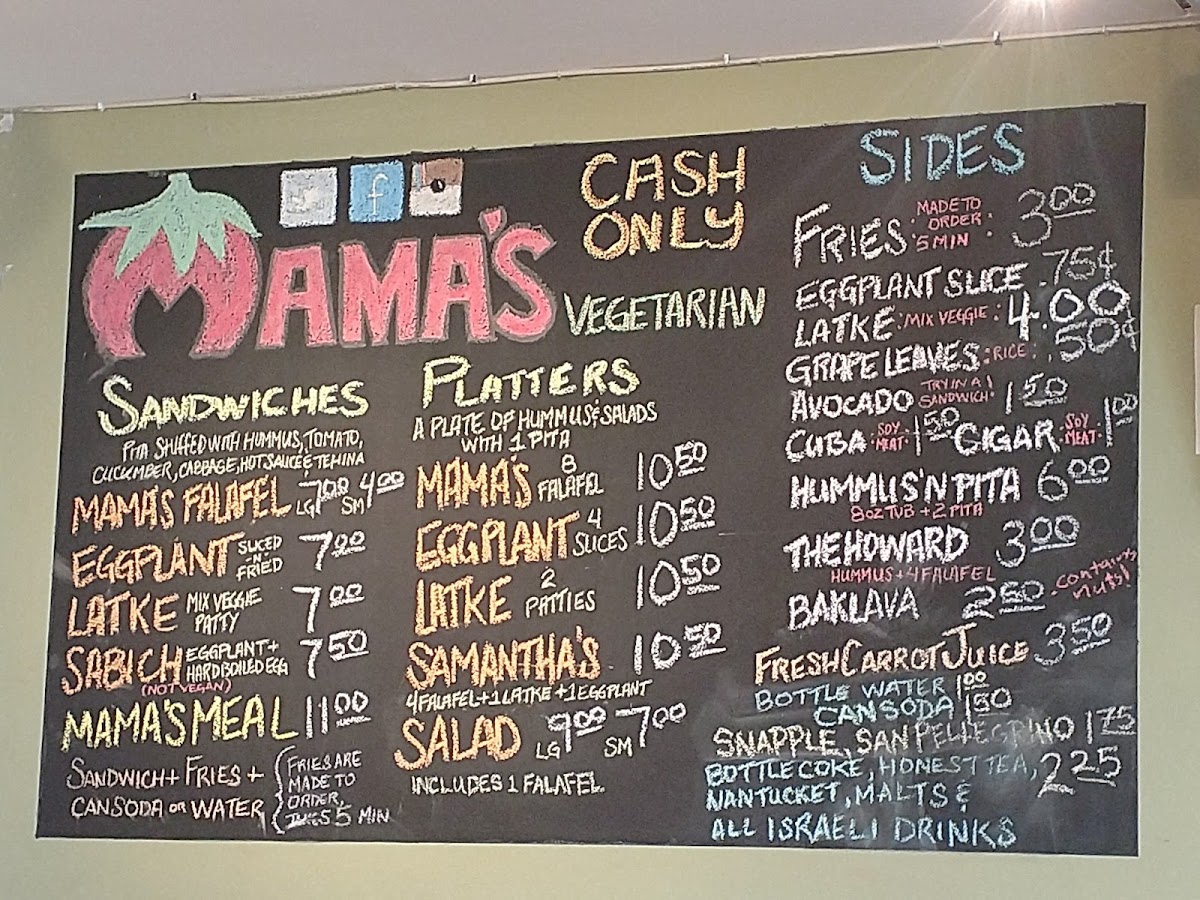 f
MAMA'S
VEGETARIAN
CASH
ONLY
SANDWICHES
PITA STUFFED WITH HUMMUS, TOMATO,
CUCUMBER, CABBAGE, HOT SAUCE & TEHINA
MAMA'S FALAFEL LG 7.00 SM 4.00
EGGPLANT SLICED 'N' FRIED 7.00
LATKE MIX VEGGIE PATTY 7.00
SABICH EGGPLANT + HARDBOILED EGG 7.50
(NOT VEGAN)
MAMA'S MEAL 11.00
SANDWICH + FRIES +
CAN SODA OR WATER
FRIES ARE
MADE TO
ORDER,
5 MIN
PLATTERS
A PLATE OF HUMMUS & SALADS
WITH 1 PITA
MAMA'S 8 FALAFEL 10.50
EGGPLANT 4 SLICES 10.50
LATKE 2 PATTIES 10.50
SAMANTHA'S 10.50
4 FALAFEL + 1 LATKE + 1 EGGPLANT
SALAD LG 9.00 SM 7.00
INCLUDES 1 FALAFEL
SIDES
FRIES: MADE TO ORDER: 5 MIN 3.00
EGGPLANT SLICE .75¢
LATKE: MIX VEGGIE: 4.00
GRAPE LEAVES: RICE: .50¢
AVOCADO TRY IN A SANDWICH! 1.50
CUBA: SOY MEAT: 1.50 CIGAR: SOY MEAT: 1.00
HUMMUS 'N PITA 6.00
8 OZ TUB + 2 PITA
THE HOWARD 3.00
HUMMUS + 4 FALAFEL
BAKLAVA 2.50 - contains nuts!
FRESH CARROT JUICE 3.50
BOTTLE WATER 1.00
CAN SODA 1.50
SNAPPLE, SAN PELLEGRINO 1.75
BOTTLE COKE, HONEST TEA, 2.25
NANTUCKET, MALTS &
ALL ISRAELI DRINKS